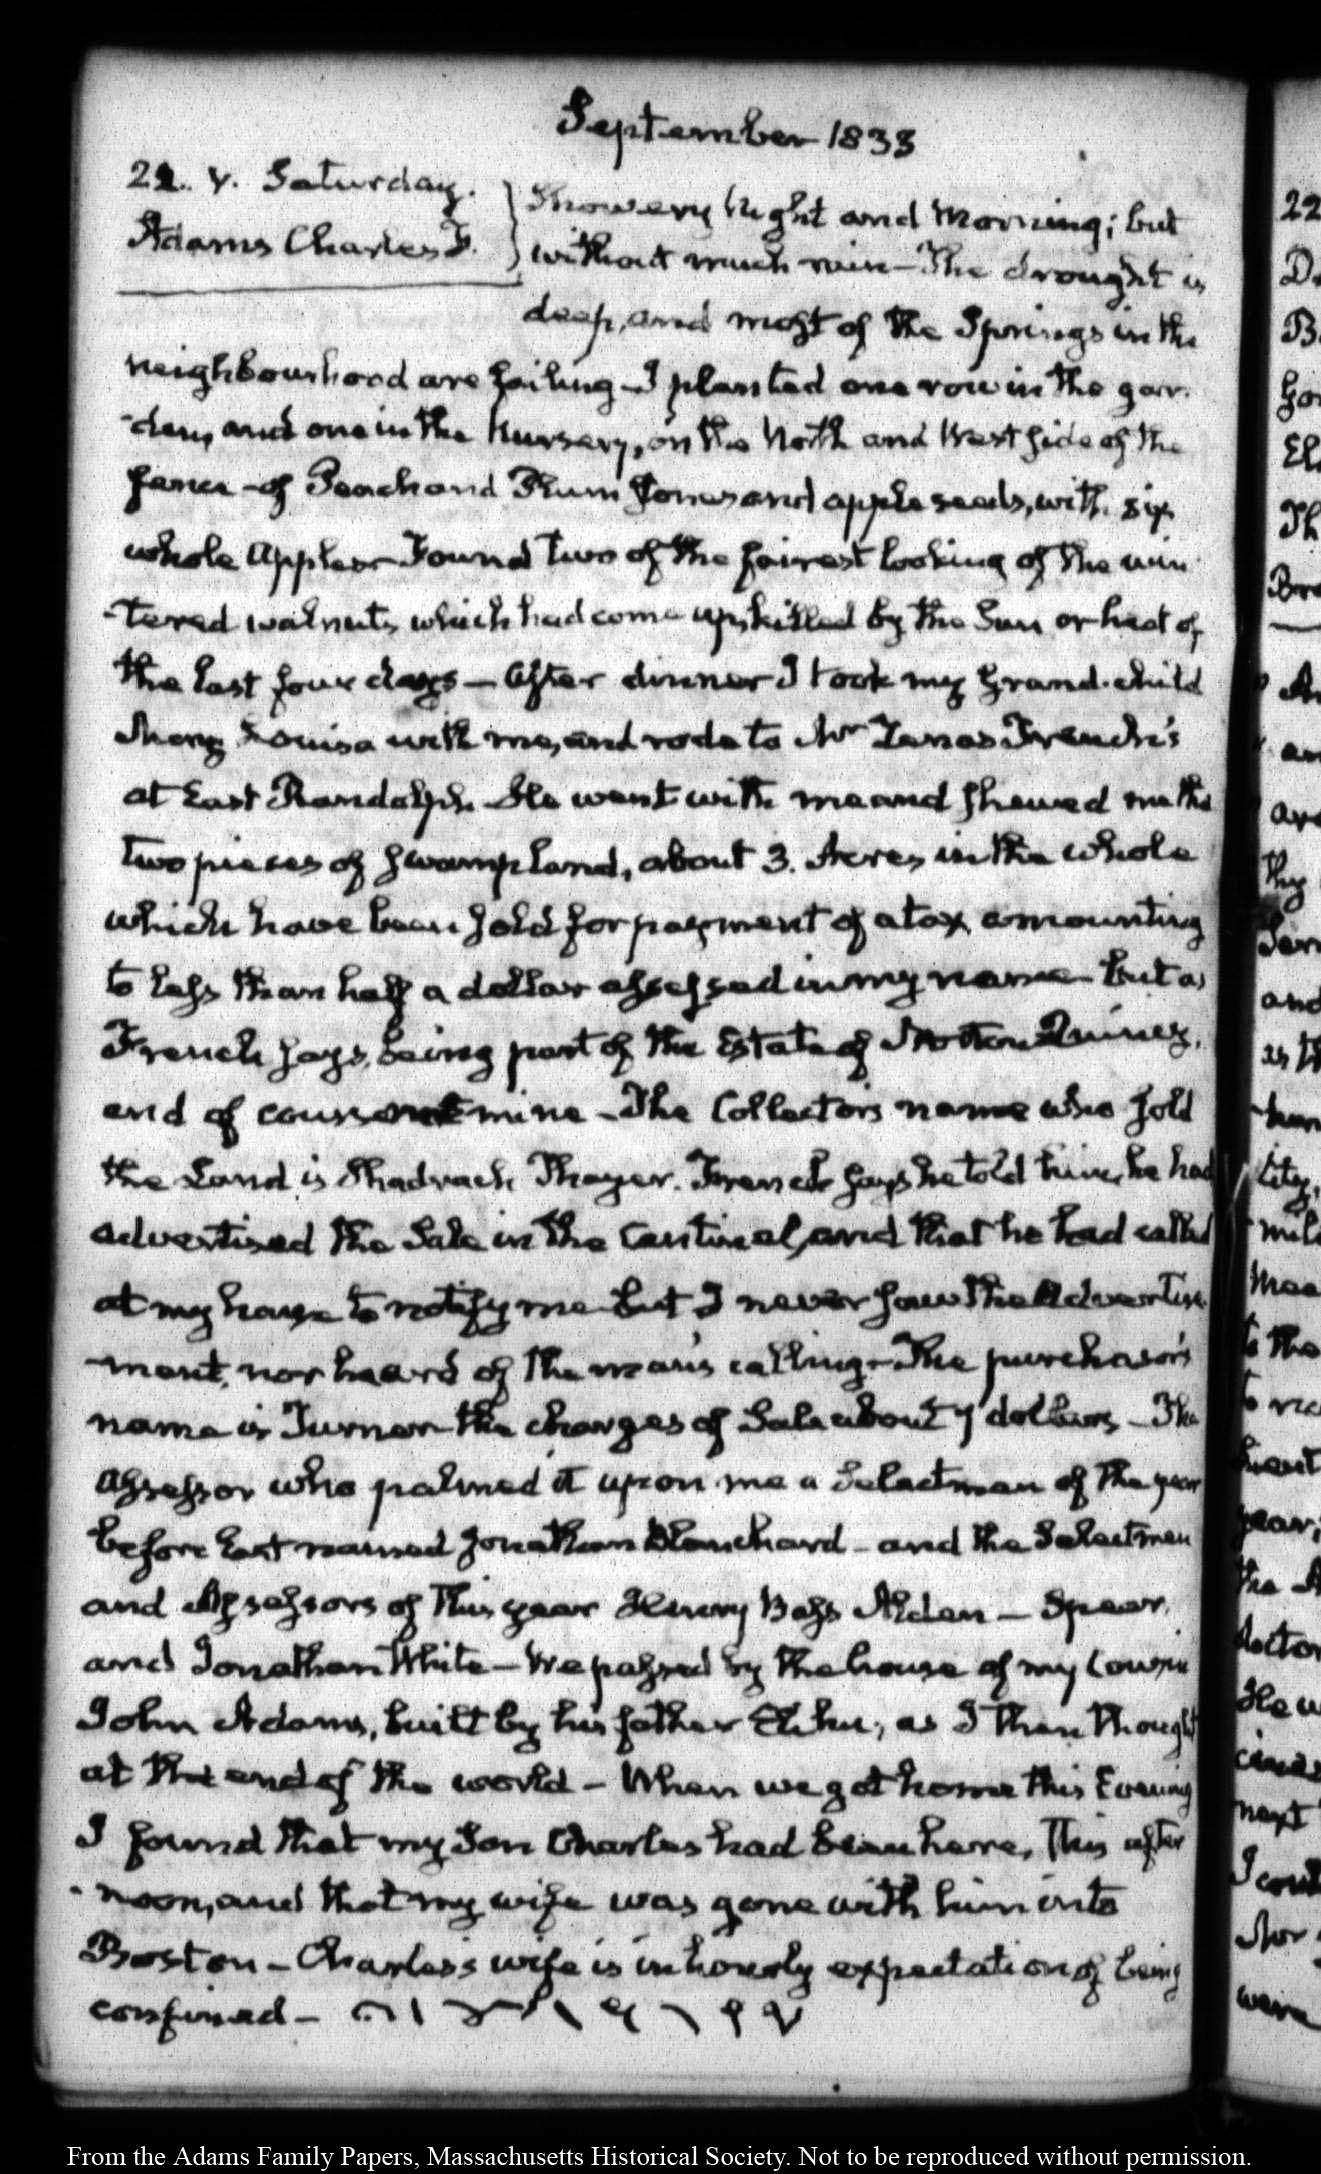 September 1833
21. V. Saturday.
Adams Charles F.
Showery Night and Morning; but
without much rain — The drought is
deep, and most of the Springs in the
neighbourhood are failing — I planted one row in the gar-
-den, and one in the Nursery, on the North and West side of the
fence — of Peach and Plum stones and apple seeds, with six
whole Apples — Found two of the fairest looking of the win-
-tered walnuts which had come up, killed by the Sun or heat of
the last four days — After dinner I took my Grand-child
Mary Louisa with me, and rode to Mr French's
at East Randolph. He went with me and shewed me the
two pieces of swamp land, about 3. Acres in the whole
which have been sold for payment of a tax amounting
to less than half a dollar assessed in my name — but as
French says, being part of the Estate of Norton Quincy,
and of course not mine — The Collectors name who sold
the Land is Shadrach Thayer. French says he told him, he had
advertised the Sale in the Centinel, and that he had called
at my house to notify me — but I never saw the Advertise-
-ment, nor heard of the man's calling — The purchaser's
name is Turner — the charges of Sale about 7 dollars — The
Assessor who palmed it upon me a Selectman of the year
before last named Jonathan Blanchard — and the Selectmen
and Assessors of this year Henry Bass Alden — Spear,
and Jonathan White — We passed by the house of my Cousin
John Adams, built by his father Elihu, as I then thought
at the end of the world — When we got home this Evening
I found that my Son Charles had been here, this after
-noon, and that my wife was gone with him into
Boston — Charles's wife is in hourly expectation of being
confined —
22